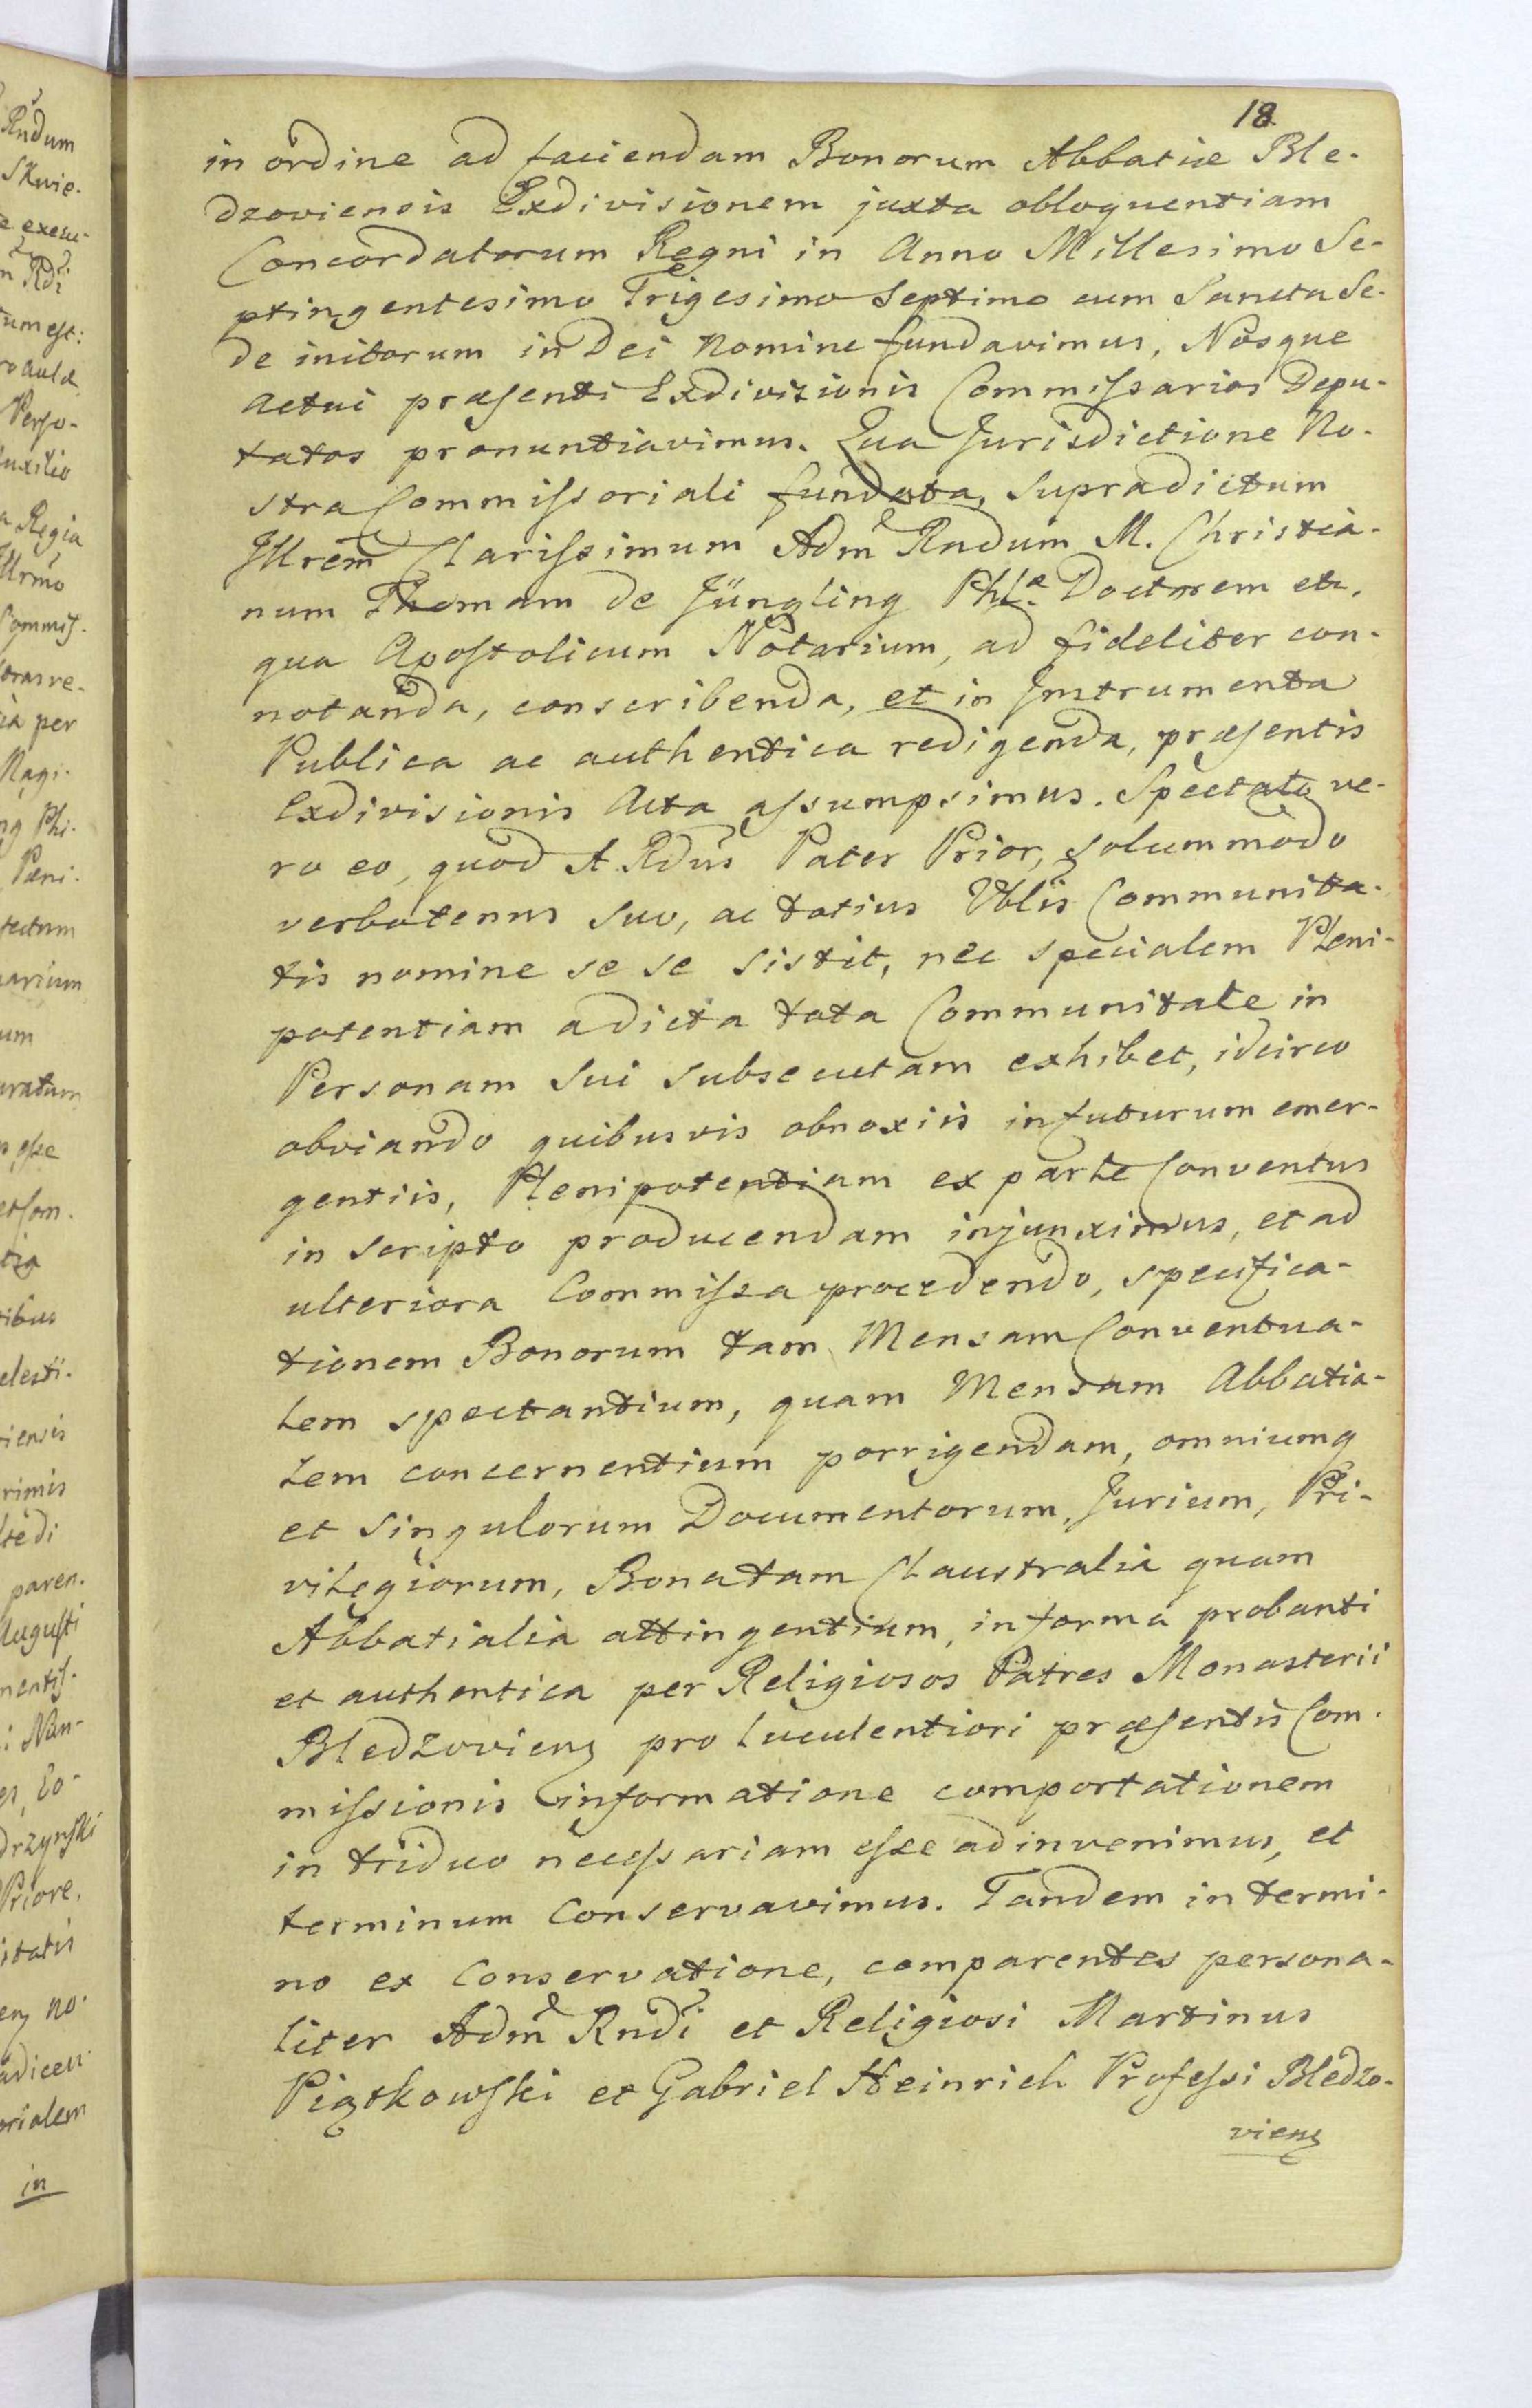 18
in ordine ad faciendam Bonorum Abbatiæ Ble-
dzoviensis Exdivisionem juxta obloquentiam
Concordatorum Regni in Anno Millesimo Se-
ptingentesimo Trigesimo Septimo cum Sancta Se-
de initorum in Dei Nomine fundavimus, Nosque
actui præsenti Exdivisionis Commissarios Depu-
tatos pronuntiavimus. Qua Jurisdictione No-
stra Commissoriali fundata, supradictum
Illrem Clarissimum Adm Rndum M. Christia-
num Thomam de Jüngling Phlæ Doctorem etc.
qua Apostolicum Notarium, ad fideliter con-
notanda, conscribenda, et in Instrumenta
Publica ac authentica redigenda, præsentis
Exdivisionis Acta assumpsimus. Spectato ve-
ro eo, quod A Rdus Pater Prior, solummodo
verbotenus suo, ac totius Vblis Communita-
tis nomine se se sistit, nec specialem Pleni-
potentiam a dicta tota Communitate in
Personam sui subsecutam exhibet, idcirco
obviando quibusvis obnoxiis in futurum emer-
gentiis, Plenipotentiam ex parte Conventus
in scripto producendam injunximus, et ad
ulteriora Commissa procedendo, specifica-
tionem Bonorum tam Mensam Conventua-
lem spectantium, quam Mensam Abbatia-
lem concernentium porrigendam, omniumq
et singulorum Documentorum, Jurium, Pri-
vilegiorum, Bona tam Claustralia quam
Abbatialia attingentium, in forma probanti
et authentica per Religiosos Patres Monasterii
Bledzoviens pro luculentiori præsentis Com-
missionis informatione comportationem
in triduo necessariam esse adinvenimus, et
terminum Conservavimus. Tandem in termi-
no ex Conservatione, comparentes persona-
liter Adm Rndi et Religiosi Martinus
Piątkowski et Gabriel Heinrich Professi Bledzo-
viens